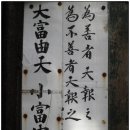 為善者天報之
為不善者天報之
大富由天小富